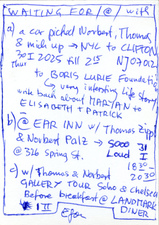 WAITING FOR @/with
a) a car picked Norbert, Thomas
& mich up → NYC to CLIFTON,
30 I 2025 till 2d NJ 07012
to BORIS LURIE Foundation
very interesting life story
with back about MARYAN to
ELISABETH + PATRICK
b) @ EAR INN w/ Thomas Zipp
& Norbert Palz → Sooo 31
@ 326 Spring St. Loud I
18:30
20:30
c) w/ Thomas & Norbert
GALLERY TOUR Soho & Chelsea
Before breakfast @ LANDMARK
1 II DINER